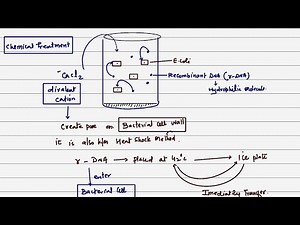 Chemical Treatment
E.coli
CaCl2
Recombinant DNA (r-DNA)
divalent
cation
Hydrophilic molecule
Create pore on Bacterial cell wall
it is also k/as Heat Shock Method.
r-DNA → placed at 42°C → ice plate
enter
Bacterial Cell
Immediately Transfer